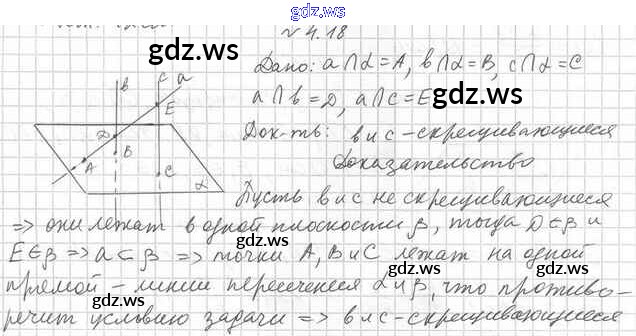 gdz.ws
№ 4.18
gdz.ws
Дано: a∩α=A, b∩α=B, c∩α=C
a∩b=D, a∩c=E
Док-ть: b и c - скрещивающиеся
Доказательство
b
c
a
E
D
B
A
C
α
gdz.ws
Пусть b и c не скрещивающиеся
⇒ они лежат в одной плоскости β, тогда D∈β и
E∈β ⇒ a⊂β ⇒ точки A, B и C лежат на одной
прямой - линии пересечения α и β, что противо-
речит условию задачи ⇒ b и c - скрещивающиеся
gdz.ws
gdz.ws
gdz.ws